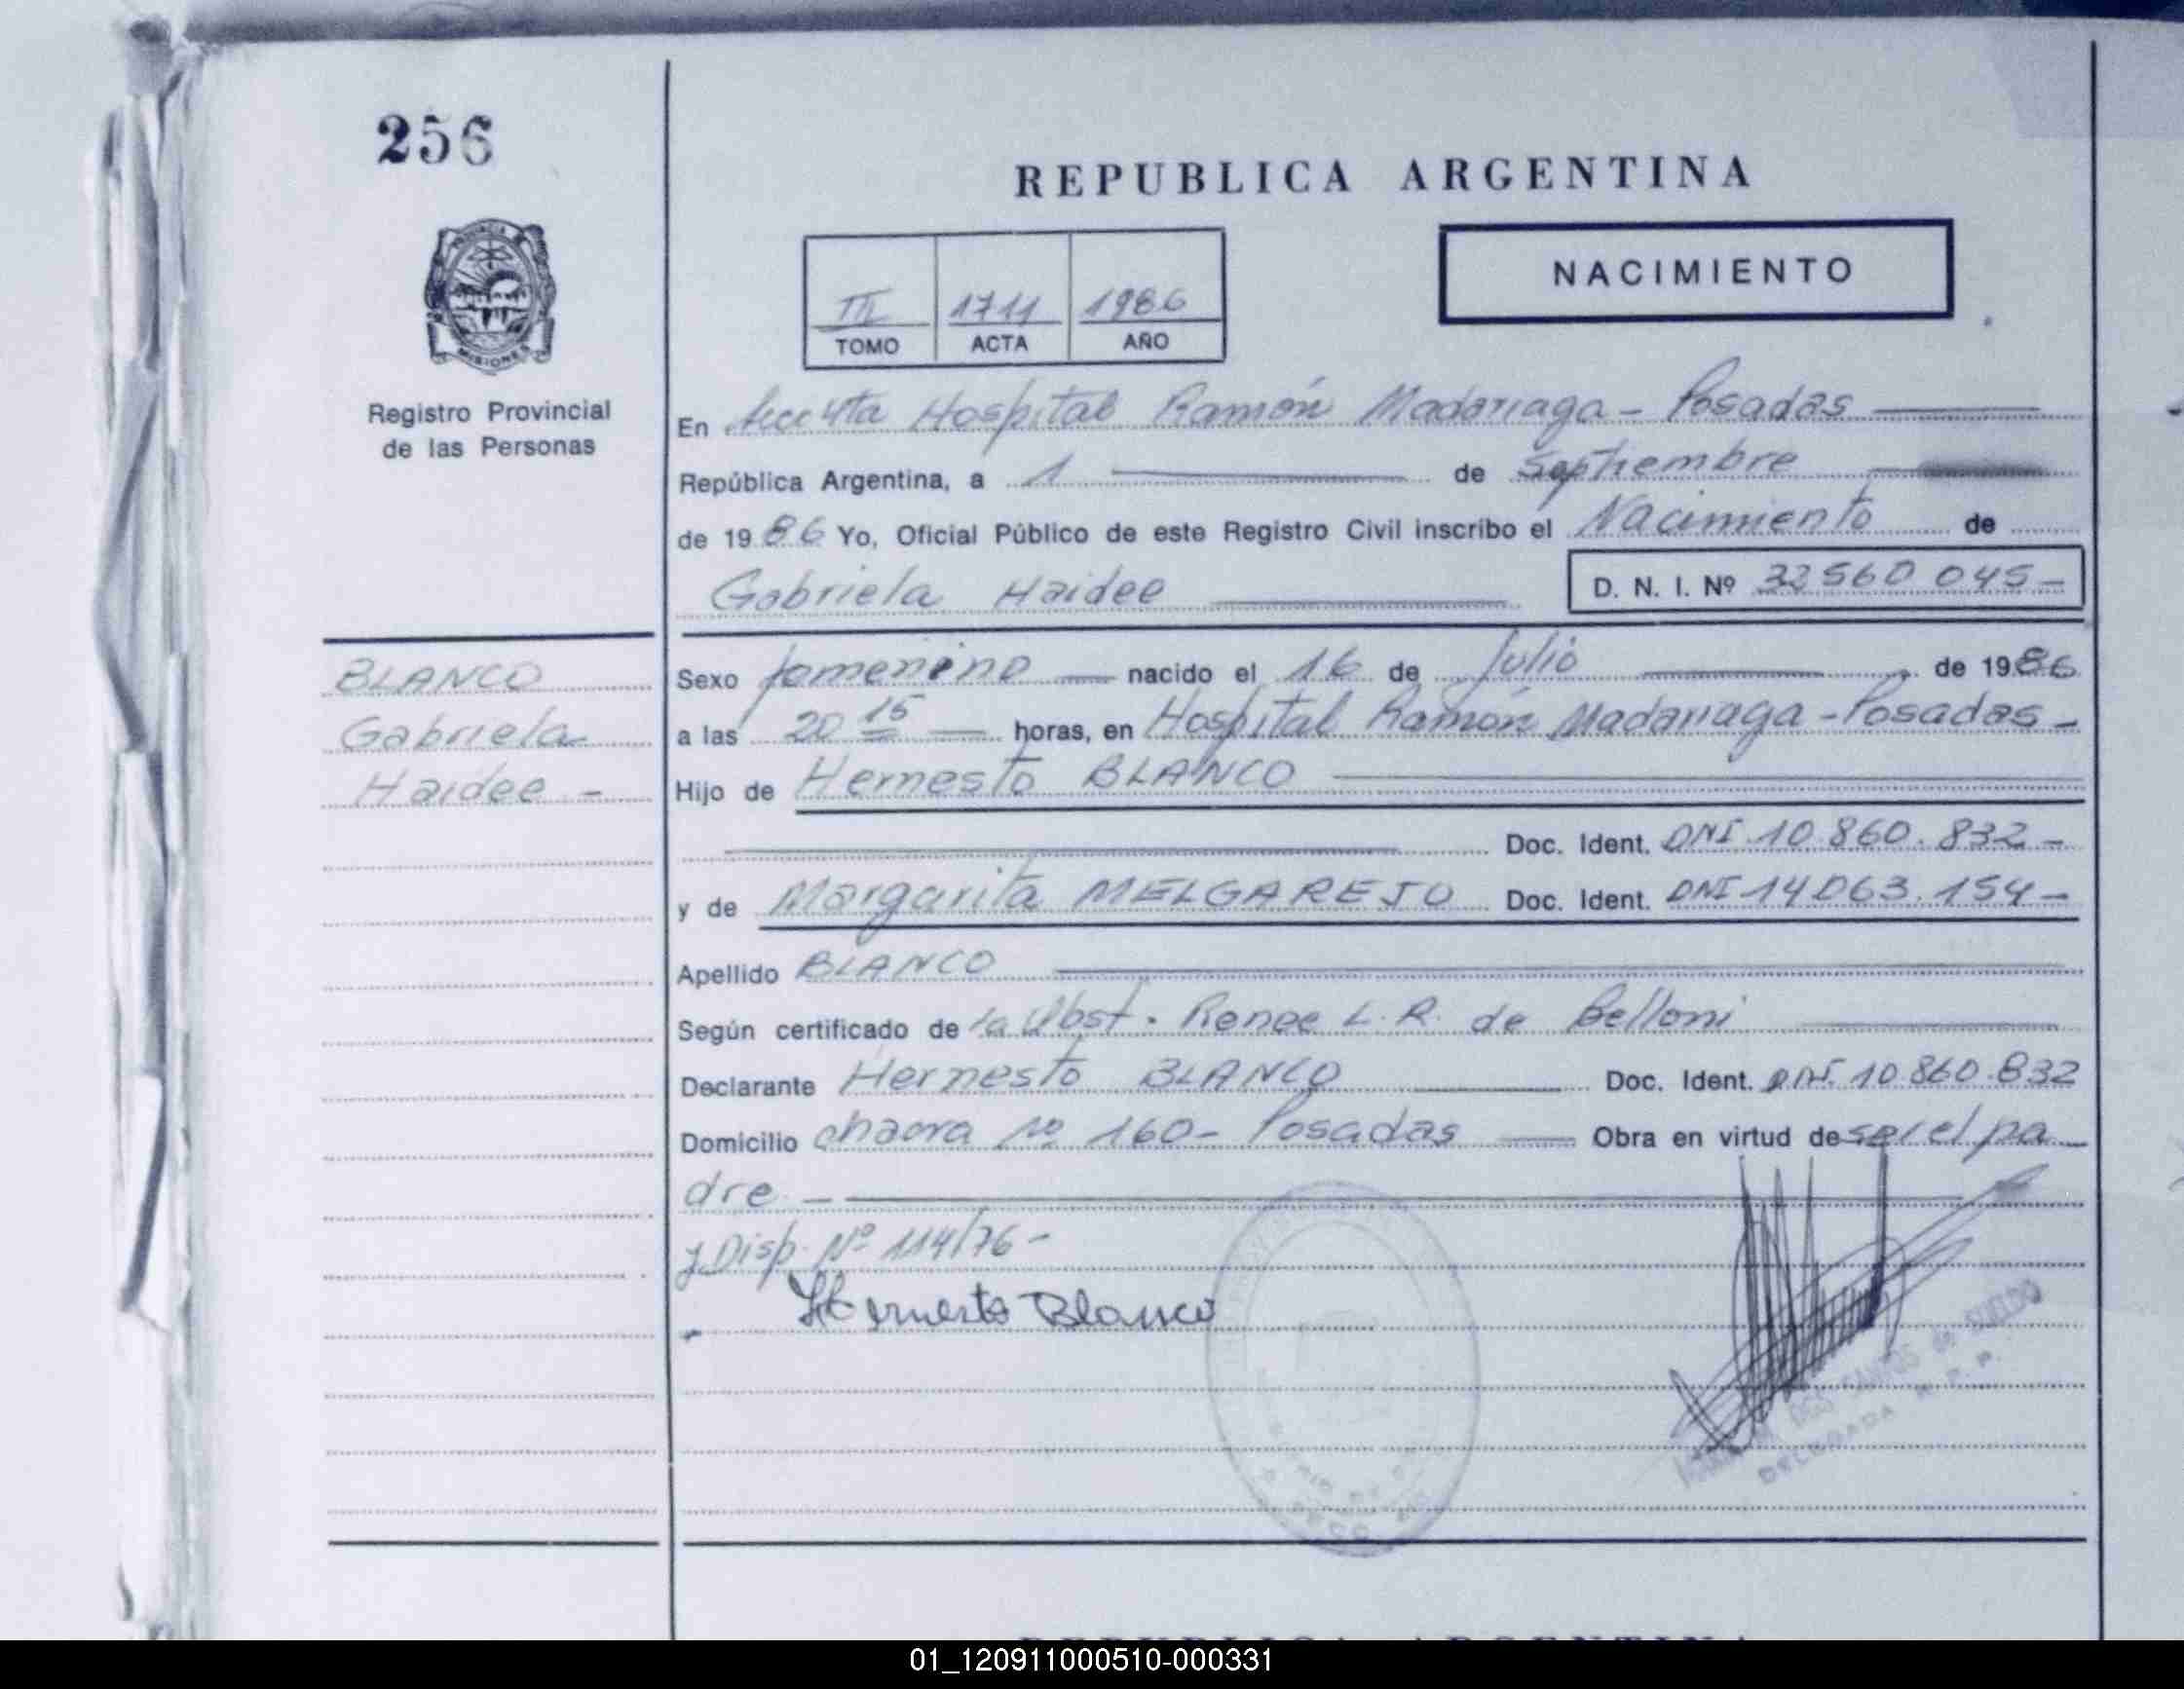 256
REPUBLICA ARGENTINA
NACIMIENTO
III 1711 1986
TOMO ACTA AÑO
MISIONES
Registro Provincial
de las Personas
En Secc 4ta Hospital Ramón Madariaga - Posadas
República Argentina, a 1 de Septiembre
de 1986 Yo, Oficial Público de este Registro Civil inscribo el Nacimiento de
Gabriela Haidee D. N. I. Nº 32560 045-
BLANCO
Gabriela
Haidee -
Sexo femenino nacido el 16 de Julio de 1986
a las 20 15 horas, en Hospital Ramón Madariaga - Posadas -
Hijo de Hernesto BLANCO
Doc. Ident. DNI 10.860.832-
y de Margarita MELGAREJO Doc. Ident. DNI 14063.154-
Apellido BLANCO
Según certificado de la Obst. Renee L. R. de Belloni
Declarante Hernesto BLANCO Doc. Ident. DNI. 10.860.832
Domicilio chacra Nº 160- Posadas Obra en virtud de ser el pa
dre -
y Disp. Nº 114/76-
Hernesto Blanco
DOS SANTOS de
DELEGADA R. P. P.
01_120911000510-000331